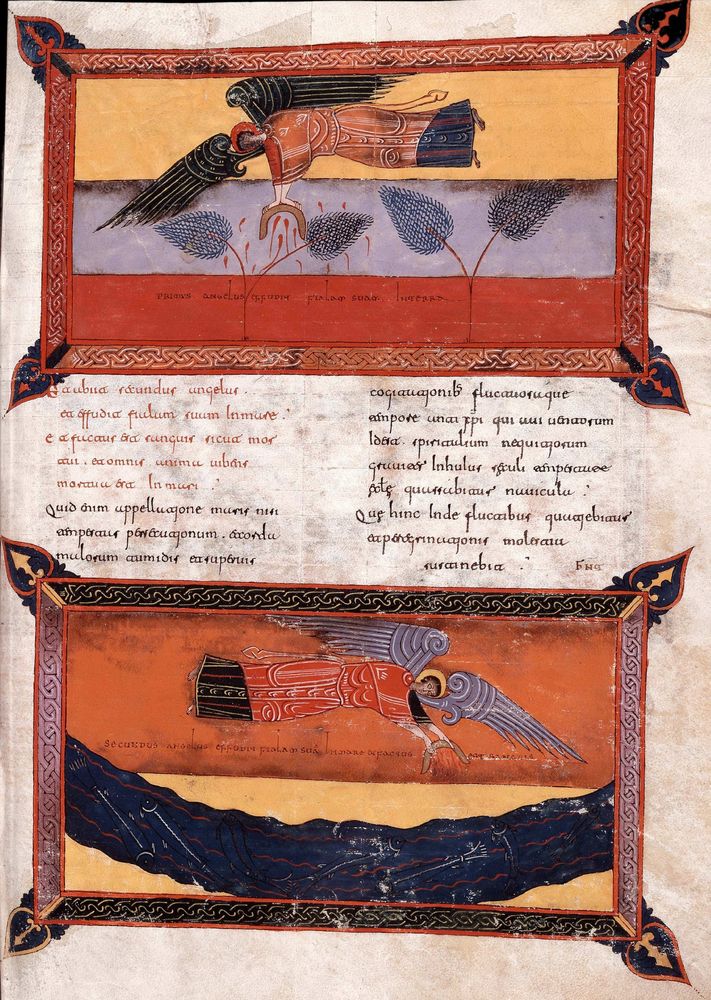 PRIMUS ANGELUS EFFUDIT FIALAM SUAM IN TERRA
Et abiit secundus angelus.
et effudit fialam suam In mare :'
Et factus est sanguis sicut mor
tui . et omnis anima vibens
mortua est In mari :'
Quid enim appellatione maris nisi
tempestas persecutionum.
mulorum tumidis et superuis
cogitationibs fluctuosique
tempore xpi qui uentorum
Idest. spiritalium nequitiarum
In huius seculi
nauicula.
Que hinc Inde fluctibus quatiebatur
et peregrinationis
sustinebat :'
SECUNDUS ANGELUS EFFUDIT FIALAM SUA IN MARE ET FACTUS EST SANGUIS